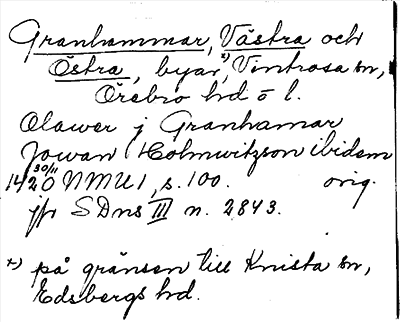 Granhammar, Västra och
Östra, byar,*) Vintrosa sn,
Örebro hd o l.
Olawer j Granhamar
Jowan Holmwitzson ibidem
1420 30/11 NMU 1, s. 100. orig.
jfr SDns III n. 2843.
*) på gränsen till Knista sn,
Edsbergs hd.